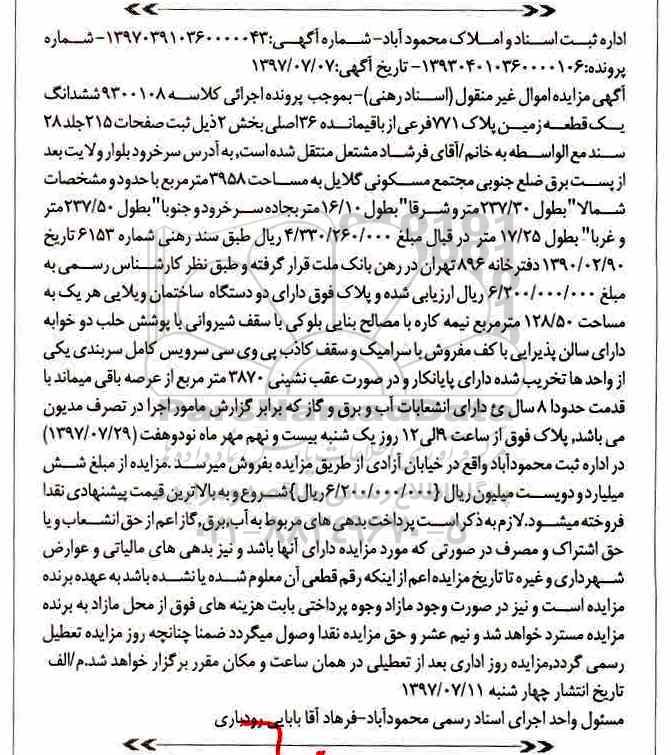 اداره ثبت اسناد و املاک محمودآباد- شماره آگهی:۱۳۹۷۰۳۹۱۰۳۶۰۰۰۰۰۴۳- شماره
پرونده:۱۳۹۳۰۴۰۱۰۳۶۰۰۰۰۱۰۶- تاریخ آگهی:۱۳۹۷/۰۷/۰۷
آگهی مزایده اموال غیر منقول (اسناد رهنی)-بموجب پرونده اجرائی کلاسه ۹۳۰۰۱۰۸ ششدانگ
یک قطعه زمین پلاک ۷۷۱فرعی از باقیمانده ۳۶اصلی بخش ۲ذیل ثبت صفحات ۲۱۵جلد ۲۸
سند مع الواسطه به خانم/آقای فرشاد مشتعل منتقل شده است, به آدرس سرخرود بلوار ولایت بعد
از پست برق ضلع جنوبی مجتمع مسکونی گلایل به مساحت ۳۹۵۸مترمربع با حدود و مشخصات
شمالا" بطول ۲۳۷/۳۰متر و شرقا" بطول ۱۶/۱۰ متر بجاده سرخرود و جنوبا" بطول ۲۳۷/۵۰متر
و غربا" بطول ۱۷/۲۵ متر در قبال مبلغ ۴/۳۳۰/۲۶۰/۰۰۰ ریال طبق سند رهنی شماره ۶۱۵۳ تاریخ
۱۳۹۰/۰۲/۹۰ دفترخانه ۸۹۶ تهران در رهن بانک ملت قرار گرفته و طبق نظر کارشناس رسمی به
مبلغ ۶/۲۰۰/۰۰۰/۰۰۰ ریال ارزیابی شده و پلاک فوق دارای دو دستگاه ساختمان ویلایی هر یک به
مساحت ۱۲۸/۵۰ مترمربع نیمه کاره با مصالح بنایی بلوکی با سقف شیروانی با پوشش حلب دو خوابه
دارای سالن پذیرایی با کف مفروش با سرامیک و سقف کاذب پی وی سی سرویس کامل سربندی یکی
از واحد ها تخریب شده دارای پایانکار و در صورت عقب نشینی ۳۸۷۰ متر مربع از عرصه باقی میماند با
قدمت حدودا ۸ سال ئ دارای انشعابات آب و برق و گاز که برابر گزارش مامور اجرا در تصرف مدیون
می باشد, پلاک فوق از ساعت ۹الی۱۲ روز یک شنبه بیست و نهم مهر ماه نودوهفت (۱۳۹۷/۰۷/۲۹)
در اداره ثبت محمودآباد واقع در خیابان آزادی از طریق مزایده بفروش میرسد .مزایده از مبلغ شش
میلیارد و دویست میلیون ریال {۶/۲۰۰/۰۰۰/۰۰۰ریال} شروع و به بالاترین قیمت پیشنهادی نقدا
فروخته میشود.لازم به ذکر است پرداخت بدهی های مربوط به آب,برق,گاز اعم از حق انشعاب و یا
حق اشتراک و مصرف در صورتی که مورد مزایده دارای آنها باشد و نیز بدهی های مالیاتی و عوارض
شهرداری و غیره تا تاریخ مزایده اعم از اینکه رقم قطعی آن معلوم شده یا نشده باشد به عهده برنده
مزایده است و نیز در صورت وجود مازاد وجوه پرداختی بابت هزینه های فوق از محل مازاد به برنده
مزایده مسترد خواهد شد و نیم عشر و حق مزایده نقدا وصول میگردد ضمنا چنانچه روز مزایده تعطیل
رسمی گردد,مزایده روز اداری بعد از تعطیلی در همان ساعت و مکان مقرر برگزار خواهد شد.م/الف
تاریخ انتشار چهار شنبه ۱۳۹۷/۰۷/۱۱
مسئول واحد اجرای اسناد رسمی محمودآباد-فرهاد آقا بابایی رودباری